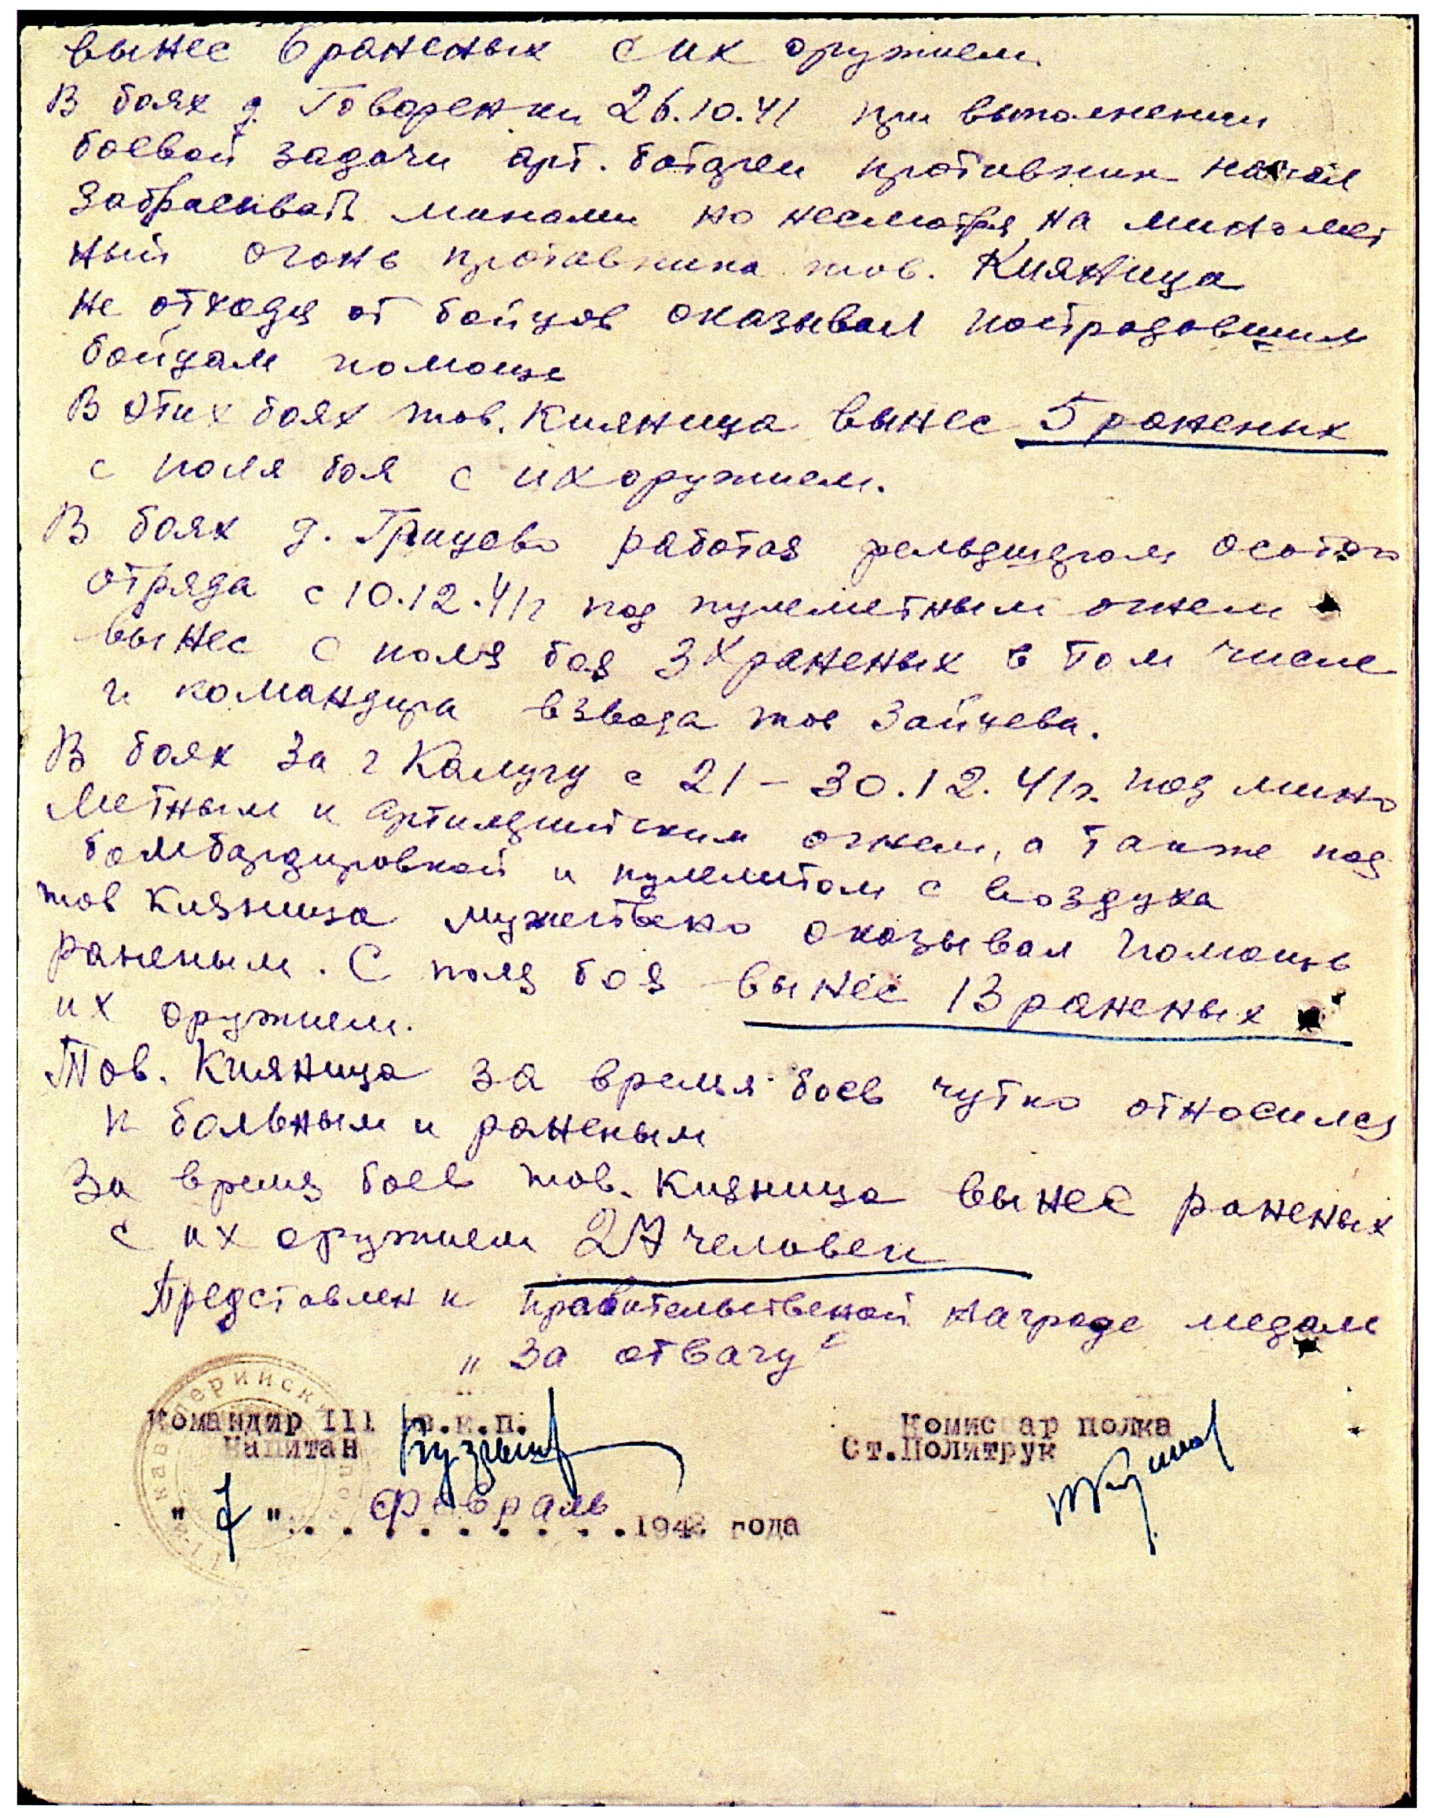 вынес 6 раненых с их оружием.
В боях д. Говоренки 26.10.41 при выполнении
боевой задачи арт. батареи противник начал
забрасывать минами но несмотря на миномет
ный огонь противника тов. Кияница
не отходя от бойцов оказывал пострадавшим
бойцам помощь
В этих боях тов. Кияница вынес 5 раненых
с поля боя с их оружием.
В боях д. Грицово работая фельдшером
отряда с 10.12.41г под пулеметным огнем
вынес с поля боя 3х раненых в том числе
и командира взвода тов Зайцева.
В боях за г Калугу с 21-30.12.41г. под мино
метным и артиллерийским огнем, а также под
бомбардировкой и пулеметом с воздуха
тов Кияница мужествено оказывал помощь
раненым. С поля боя вынес 13 раненых с
их оружием.
Тов. Кияница за время боев чутко относился
к больным и раненым
За время боев тов. Кияница вынес раненых
с их оружием 27 человек
Представлен к правительственой награде медаль
„За отвагу“
Командир 111 Комиссар полка
Капитан Ст.Политрук
"7" февраль 1942 года